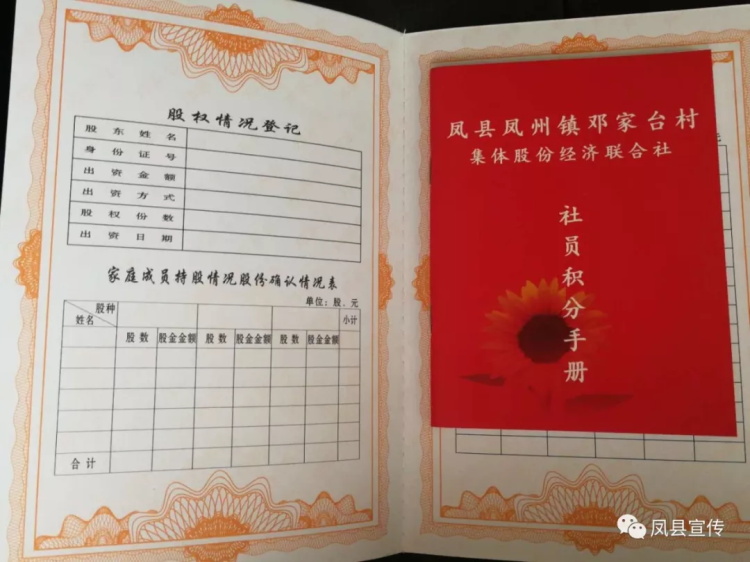 股权情况登记
股东姓名
身份证号
出资金额
出资方式
股权份数
出资日期
家庭成员持股情况股份确认情况表
单位：股、元
股种
姓名
小计
股数 股金金额 股数 股金金额 股数 股金金额
合计
凤县凤州镇邓家台村
集体股份经济联合社
社员积分手册
元
凤县宣传